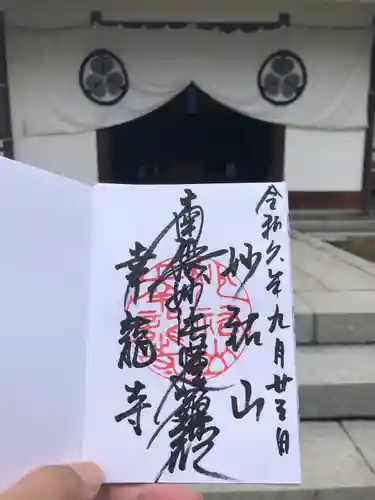 令和六年九月廿五日
妙祐山
南無妙法蓮華経
幸龍寺